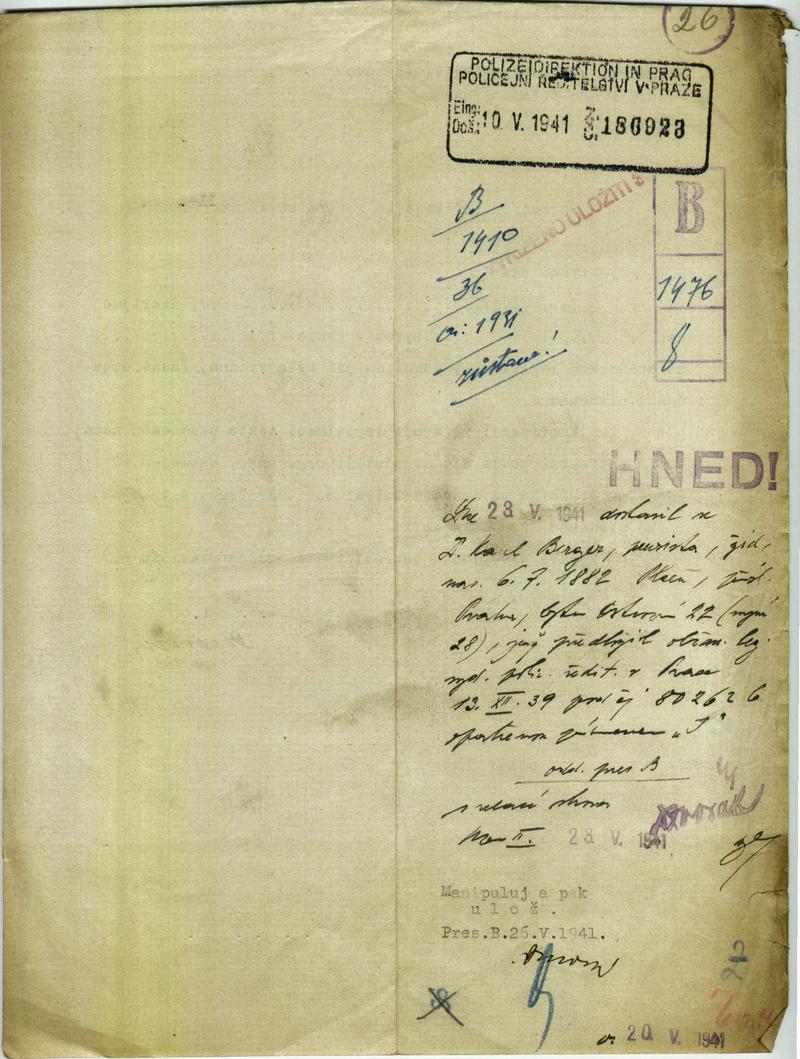 26
POLIZEIDIREKTION IN PRAG
POLICEJNÍ ŘEDITELSTVÍ V PRAZE
Eing.
Došlo 10 V. 1941 186923
B
1410
36
1931
zůstane!
ULOŽITI
B
1476
8
HNED!
Dne 23 V. 1941 dostavil se
Dr. Karel Berger, purista, žid,
nar. 6. 7. 1882 přísl.
Praha, bytem 22 (nyní
28), jenž předložil občan. leg.
vyd. polic. ředit. v Praze
13. XII. 39 pod čj 80262 6
opatřenou písmenem „J“
odd. pres B
s relací shora
II. 23 V. 1941
Manipuluj a pak
ulož.
Pres.B.26.V.1941.
20 V. 1941